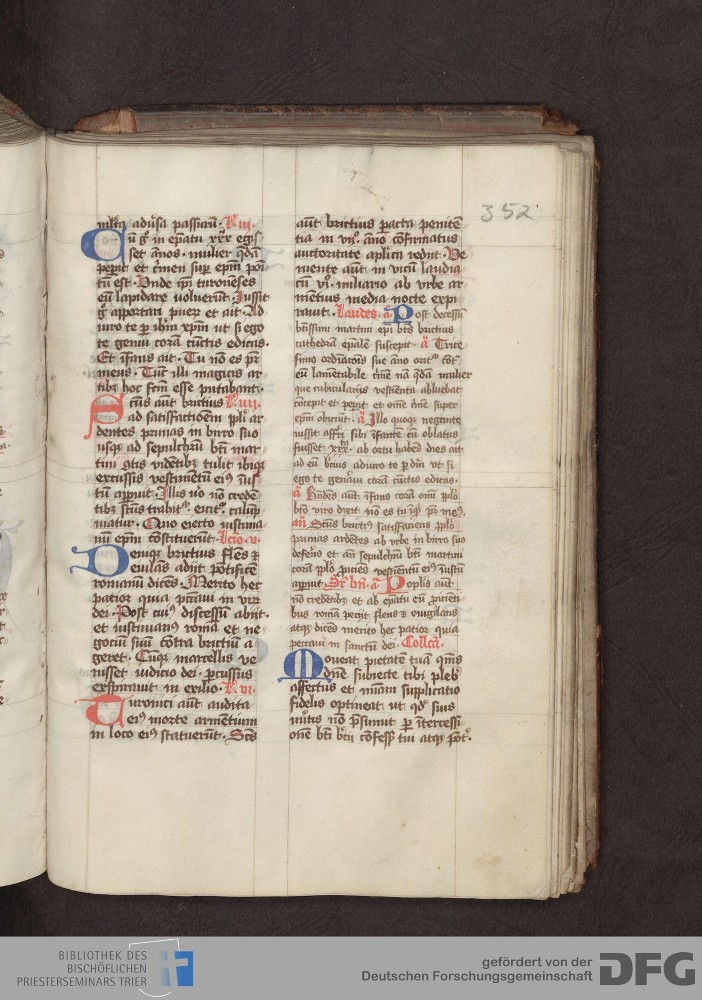 352
ml̄tꝯ adūsa passurū· L̄ iij·
Cū g̊ in ep̄atu xxx egis
set ānos· mulier q̄dā
peperit et c̄men suꝑ ep̄m poſi
tū est· Vnde ip̄i turoneses
eū lapidare voluerūt· Jussit
g̊ apportari pueꝝ et ait· Ad
iuro te ꝑ ih̄m xp̄m ut si ego
te genui corā cūctis edicas·
Et īfans ait· Tu nō es pr̄
meus· Tūc illi magicis ar
tibꝫ hoc scm̄ esse putabant·
Scūs aūt brictius L̄ iiij·
ad satisfactioēm pp̄li ar
dentes prunas in birro suo
usqꝫ ad sepulchrū bt̄i mar
tini
excussis vestimētū eiꝰ īus
tū apparuit· Illis v̊o nō credē
tibꝫ
matur· Quo eiecto iustinia
nū ep̄m cōstituerūt· Lc̄io· v·
Deniqꝫ brictius flēs ⁊
eiulās adijt pōtificē
romanū dicēs· Merito hec
patior quia pccaui in viꝝ
dei· Post cuiꝰ discessū abijt·
et iustinianꝰ romā et ne
gociū suū cōtra brictiū a
geret· Cūqꝫ marcellis ve
nisset iudicio dei ꝑcussus
exspirauit in exilio· L̄ vi·
Turonici aūt audita
eiꝰ morte armentium
in loco eiꝰ statuerūt· Scūs
aūt brictius pacta penitē
tia in vijº· āno cōfirmatus
auctoritate aplīca redijt· Ve
niente aūt in vicū laudia
cū viº· miliario ab vrbe ar
mētius media nocte expi
rauit· Laudes· a̅ Post decessū
bn̄ssimi martini ep̄i bt̄s brictius
cathedrā ep̄alē suscepit· a̅ Trice
simo ordinatōis sue āno oritᷣ cōtᷣ
eū lamētabile c̄mē nā q̄dā mulier
que cubiculariꝰ vestienta abluebat
cōcepit et pepīt et om̄e c̄mē super
ep̄m obiciūt· a̅ Illo quoqꝫ negante
iussit affᷣri sibi īfantē cū oblatus
fuisset xxx· ab ortu habēs dies ait
ad eū b̄ctius adiuro te ꝑ dm̄ vt si
ego te genui corā cūctis edicas·
a̅ Rn̄dens aūt īfans corā om̄i pp̄lo
bt̄o viro dixit no es tu ip̄e pr̄ meꝰ·
an̄ Scūs brictiꝰ satisfaciens pp̄lo
prunas ardētes ab vrbe in birro suo
deferēs et ān sepulchrū bt̄i martini
corā pp̄lo ꝓiciēs vestientū eiꝰ īustū
apparuit Sr̄ bn̄· a̅ Poplis aūt
nō credētibꝫ et ab ep̄atu eū ꝓicienti
bus romā petijt flens ⁊ eiugilans
atqꝫ dicēs merito hec patior quia
peccaui in sanctū dei· Collcā·
Moueat pietatē tuā qs̄m̄s
dn̄e subiecte tibi pleb
affectus et nr̄am supplicatio
fidelis optineat ut qd̄ suis
mītis nō p̄sumit ꝑ īteressi
onē bt̄i b̄cij cōfess̄ tui atqꝫ pōt·
BIBLIOTHEK DES
BISCHÖFLICHEN
PRIESTERSEMINARS TRIER
gefördert von der
Deutschen Forschungsgemeinschaft
DFG